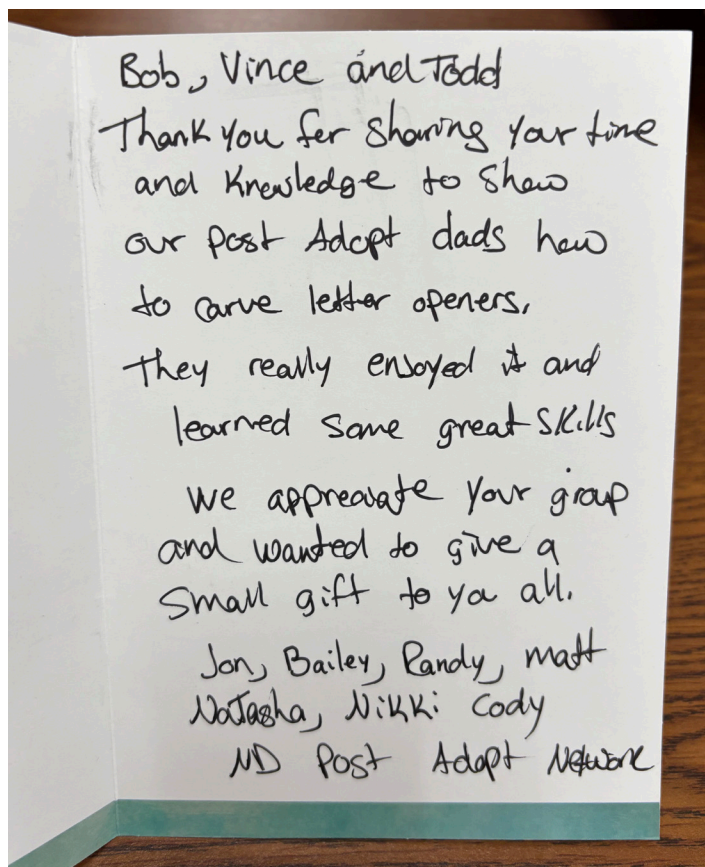 Bob, Vince and Todd
Thank you for sharing your time
and Knowledge to show
our post Adopt dads how
to carve letter openers.
They really enjoyed it and
learned some great skills
we appreciate your group
and wanted to give a
small gift to you all.
Jon, Bailey, Randy, matt
Natasha, Nikki Cody
ND Post Adopt Network